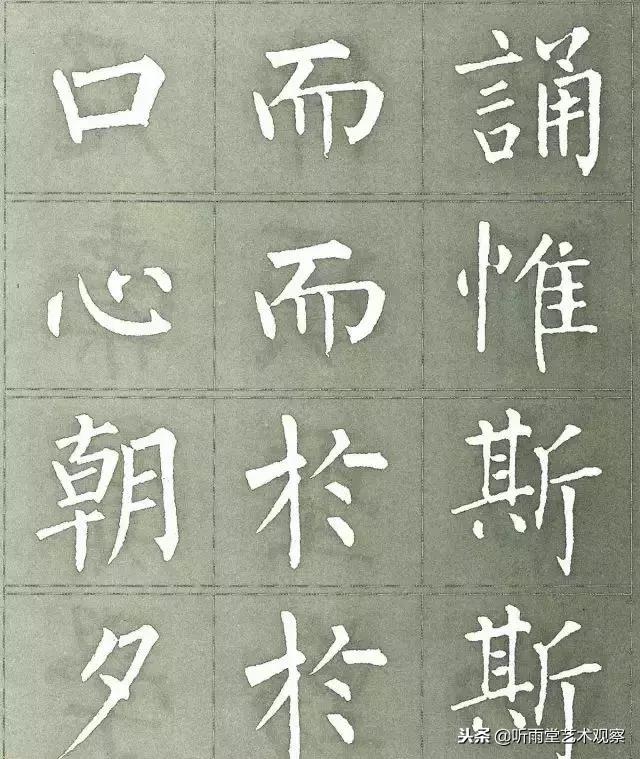 口而誦
心而惟
朝於斯
夕於斯
头条 @听雨堂艺术观察